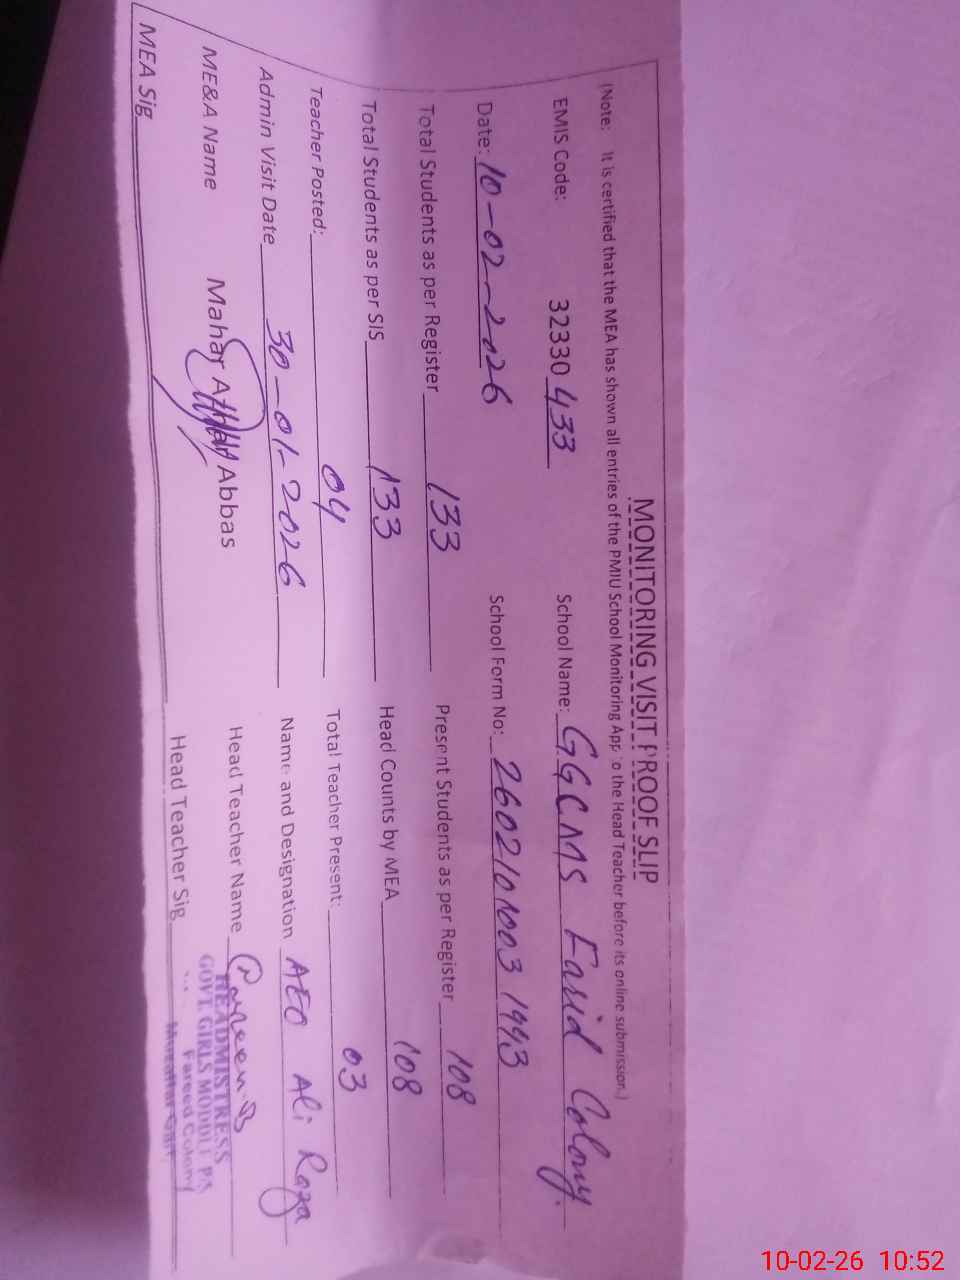 MONITORING VISIT PROOF SLIP
(Note: It is certified that the MEA has shown all entries of the PMIU School Monitoring App to the Head Teacher before its online submission.)
EMIS Code: 32330 433 School Name: GGCMS Farid Colony.
Date: 10-02-2026 School Form No: 2602101003 1993
Total Students as per Register 133 Present Students as per Register 108
Total Students as per SIS 133 Head Counts by MEA 108
Teacher Posted: 04 Total Teacher Present: 03
Admin Visit Date 30-01-2026 Name and Designation AEO Ali Raza
ME&A Name Mahar Abbas Head Teacher Name Parveen B
MEA Sig Head Teacher Sig
HEADMISTRESS
GOVT. GIRLS MODDLE P/S
Fareed Colony
Muzaffar Garh
10-02-26 10:52